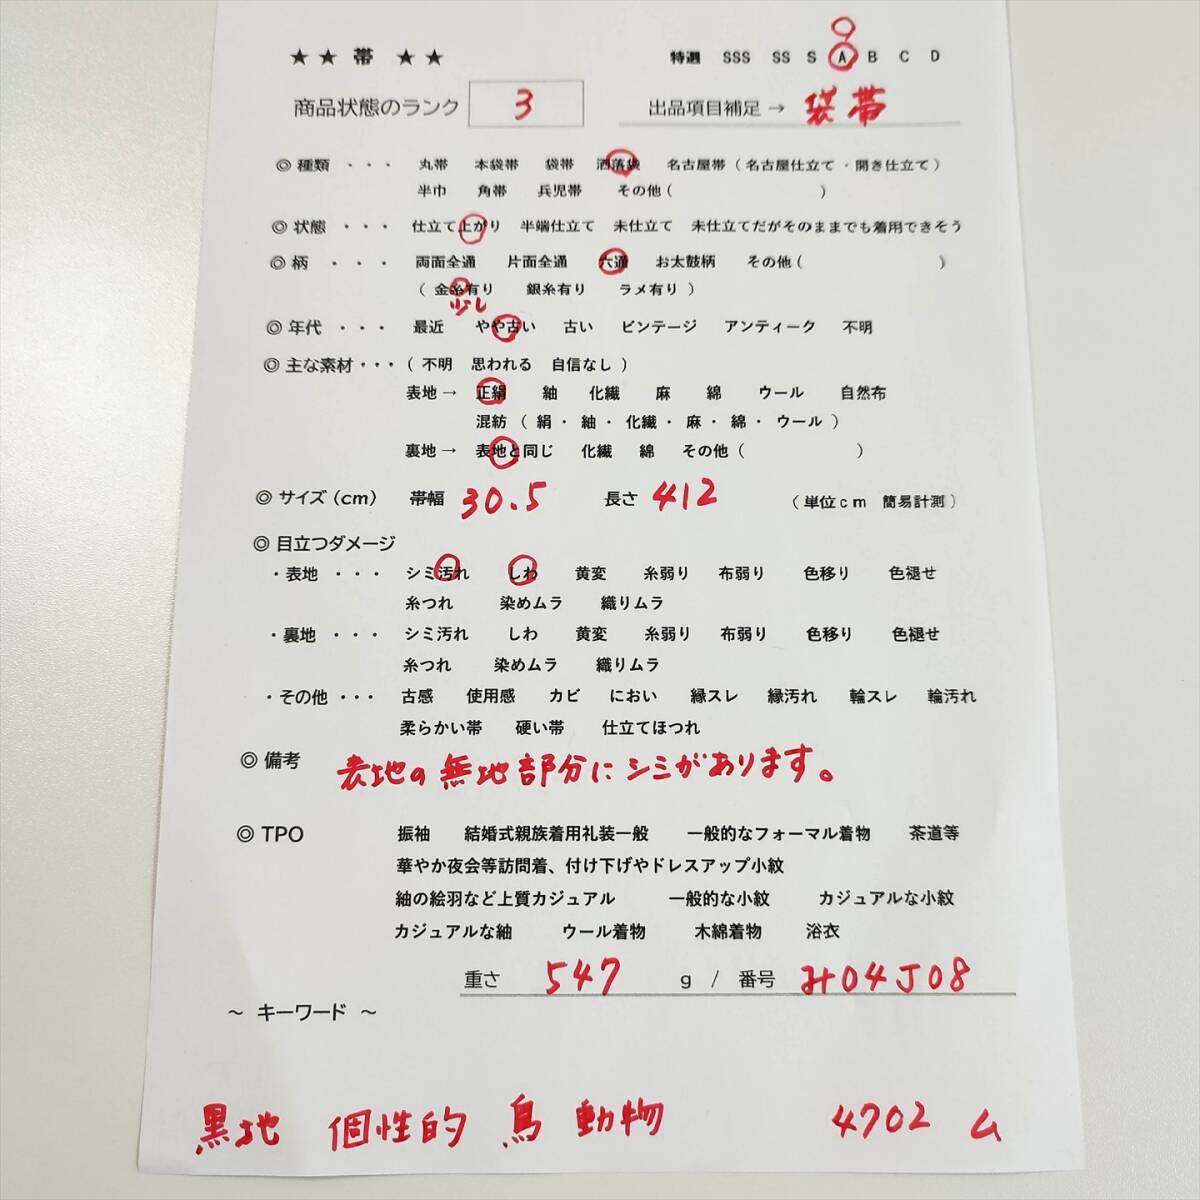 ★★ 帯 ★★ 特選 SSS SS S A B C D
商品状態のランク 3 出品項目補足 → 袋帯
◎ 種類 ・・・ 丸帯 本袋帯 袋帯 洒落袋 名古屋帯（名古屋仕立て・開き仕立て）
半巾 角帯 兵児帯 その他（ ）
◎ 状態 ・・・ 仕立て上がり 半端仕立て 未仕立て 未仕立てだがそのままでも着用できそう
◎ 柄 ・・・ 両面全通 片面全通 六通 お太鼓柄 その他（ ）
（ 金糸有り 銀糸有り ラメ有り ）
少し
◎ 年代 ・・・ 最近 やや古い 古い ビンテージ アンティーク 不明
◎ 主な素材・・・（ 不明 思われる 自信なし ）
表地 → 正絹 紬 化繊 麻 綿 ウール 自然布
混紡 （ 絹・紬・化繊・麻・綿・ウール ）
裏地 → 表地と同じ 化繊 綿 その他（ ）
◎ サイズ（cm） 帯幅 30.5 長さ 412 （単位cm 簡易計測）
◎ 目立つダメージ
・表地 ・・・ シミ汚れ しわ 黄変 糸弱り 布弱り 色移り 色褪せ
糸つれ 染めムラ 織りムラ
・裏地 ・・・ シミ汚れ しわ 黄変 糸弱り 布弱り 色移り 色褪せ
糸つれ 染めムラ 織りムラ
・その他 ・・・ 古感 使用感 カビ におい 縁スレ 縁汚れ 輪スレ 輪汚れ
柔らかい帯 硬い帯 仕立てほつれ
◎ 備考 表地の無地部分にシミがあります。
◎ TPO 振袖 結婚式親族着用礼装一般 一般的なフォーマル着物 茶道等
華やか夜会等訪問着、付け下げやドレスアップ小紋
紬の絵羽など上質カジュアル 一般的な小紋 カジュアルな小紋
カジュアルな紬 ウール着物 木綿着物 浴衣
重さ 547 g / 番号 み04J08
～ キーワード ～
黒地 個性的 鳥 動物 4702 ム